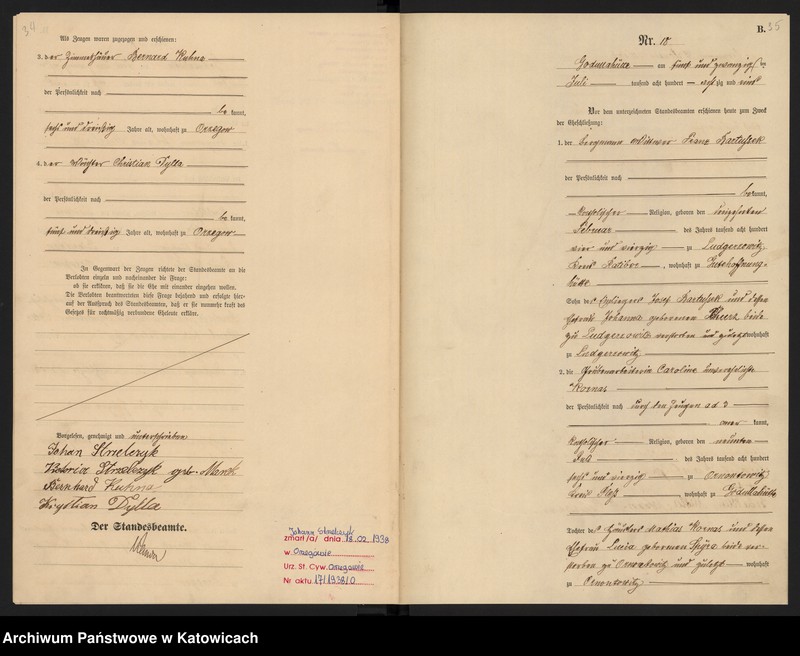 34
Als Zeugen waren zugezogen und erschienen:
3. der Zimmerhäuer Bernard Kuhna
der Persönlichkeit nach
be kannt,
sechs und dreißig Jahre alt, wohnhaft zu Orzegow
4. der Wächter Christian Dylla
der Persönlichkeit nach
be kannt,
fünf und dreißig Jahre alt, wohnhaft zu Orzegow
In Gegenwart der Zeugen richtete der Standesbeamte an die
Verlobten einzeln und nacheinander die Frage:
ob sie erklären, daß sie die Ehe mit einander eingehen wollen.
Die Verlobten beantworteten diese Frage bejahend und erfolgte hier-
auf der Ausspruch des Standesbeamten, daß er sie nunmehr kraft des
Gesetzes für rechtmäßig verbundene Eheleute erkläre.
Vorgelesen, genehmigt und unterschrieben
Johan Strzelczyk
Victoria Strzelczyk geb.
Bernhard Kuhna
Krystian Dylla
Der Standesbeamte.
Johann Strzelczyk
zmarł/a/ dnia 18.02.1938
w Orzegowie
Urz. St. Cyw. Orzegowie
Nr aktu 17/1938/O
B. 35
Nr. 18
Godullahütte am fünf und zwanzigsten
Juli tausend acht hundert achtzig und eins
Vor dem unterzeichneten Standesbeamten erschienen heute zum Zweck
der Eheschließung:
1. der Bergmann Wittwer Franz
der Persönlichkeit nach
bekannt,
katholischer Religion, geboren den
Februar des Jahres tausend acht hundert
vier und vierzig zu Ludgerzowitz
Kreis Ratibor, wohnhaft zu Gutehoffnungs-
hütte
Sohn des Einliegers Josef und dessen
Ehefrau Johanna geborenen beide
zu Ludgerzowitz verstorben und zuletzt wohnhaft
zu Ludgerzowitz
2. die Grubenarbeiterin Caroline unverehelichte
Kornas
der Persönlichkeit nach durch den Zeugen ad 3
aner kannt,
katholischer Religion, geboren den neunten
Juli des Jahres tausend acht hundert
sechs und vierzig zu Ornontowitz
Kreis Pleß, wohnhaft zu Godullahütte
Tochter des Häuslers Mathias Kornas und dessen
Ehefrau Lucia geborenen Spyra beide ver-
storben zu Ornontowitz und zuletzt wohnhaft
zu Ornontowitz
Archiwum Państwowe w Katowicach